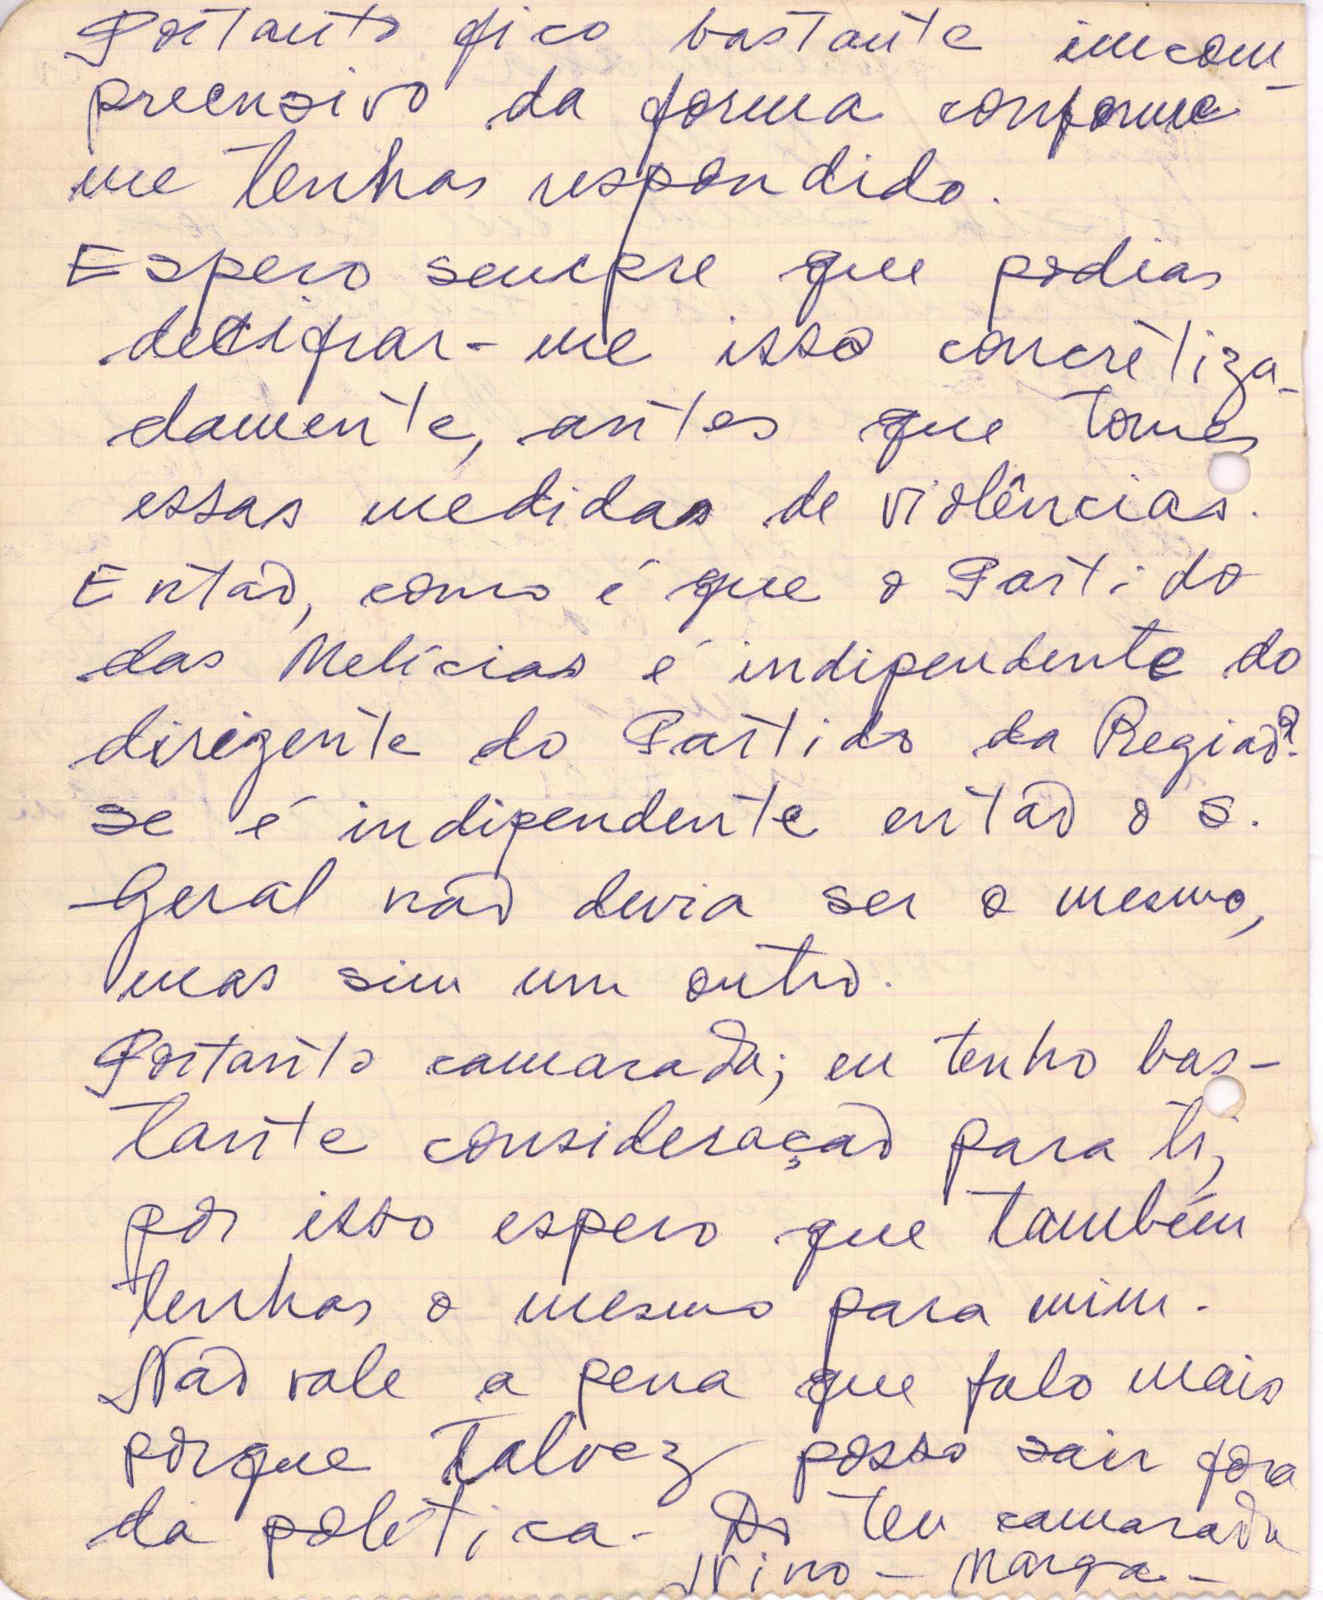 Portanto fico bastante imcom-
preensivo da forma conforme
me tenhas respondido.
Espero sempre que podias
decifrar-me isso concretiza-
damente, antes que tomes
essas medidas de violências.
Então, como é que o Partido
das Melícias é indipendente do
dirigente do Partido da Região?
se é indipendente então o S.
Geral não devia ser o mesmo,
mas sim um outro.
Portanto camarada; eu tenho bas-
tante consideração para ti;
por isso espero que também
tenhas o mesmo para mim.
Não vale a pena que falo mais
porque talvez posso sair fora
da política. Do teu camarada
Nino - Marga -